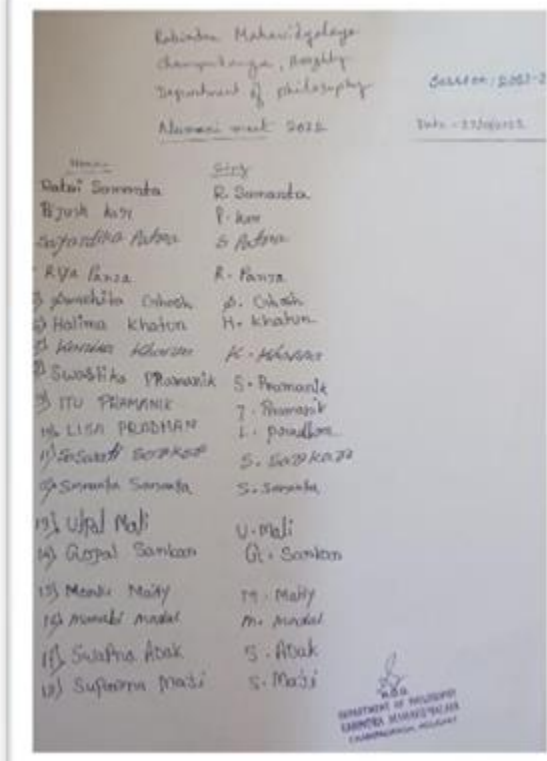 Rabindra Mahavidyalaya
Champadanga, Hooghly
Department of philosophy
Alumani meet 2022
Session: 2021-2
Name Sing
Ratri Samanta R. Samanta
Pijush kar P. kar
Sayantika Patra S Patra
Riya Panja R. Panja
5) Suchita Ghosh S. Ghosh
6) Halima Khatun H. Khatun
Swastika PRamanik S. Pramanik
9) ITU PRAMANIK I. Pramanik
10) LISA PRADHAN L. Pradhan
11) Saswati Sarkar S. Sarkar
12) Smranta Samanta S. Samanta
13) Utpal Mali U. Mali
14) Gopal Sarkar G. Sarkar
15) Maity M. Maity
16) M.
17) Swapna Adak S. Adak
18) Suparna Maji S. Maji
H.O.D
DEPARTMENT OF PHILOSOPHY
RABINDRA MAHAVIDYALAYA
CHAMPADANGA, HOOGHLY